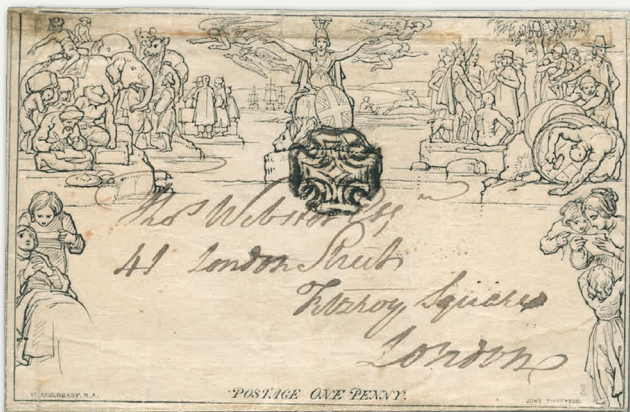 Thos Webster Esqre
41 London Street
Fitzroy Square
London
W. MULREADY, R.A.
POSTAGE ONE PENNY.
JOHN THOMPSON